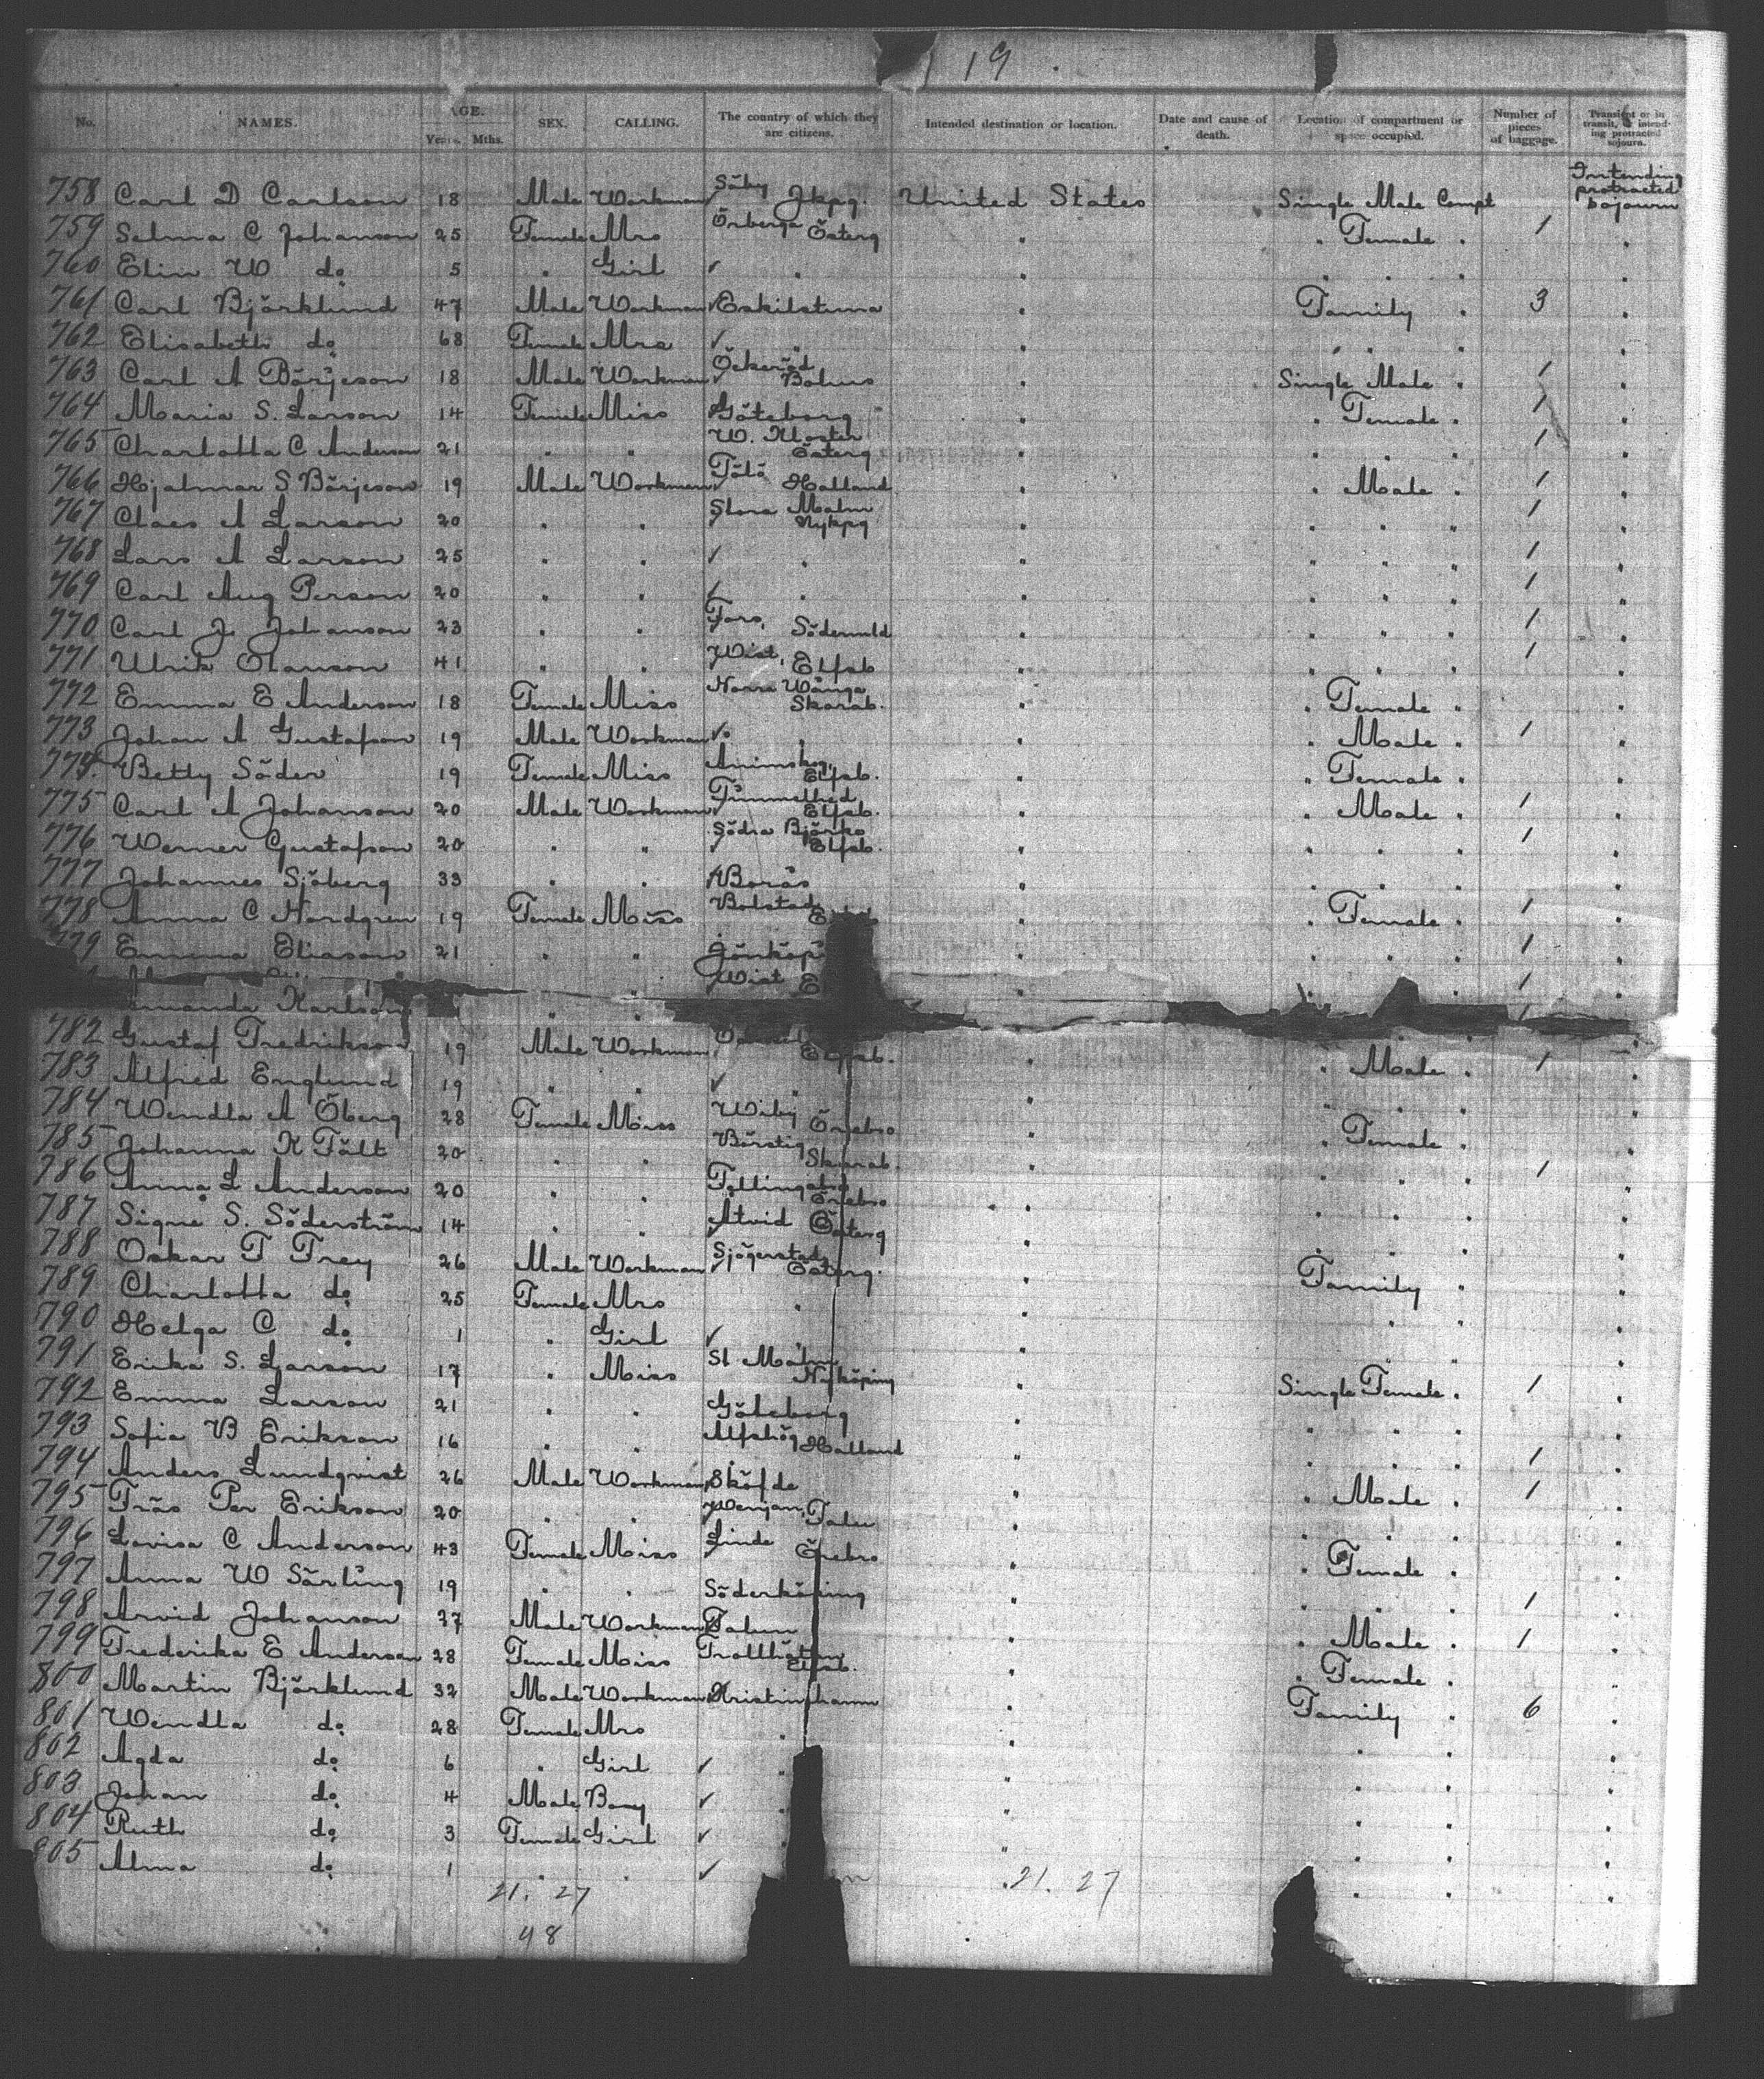 19
No. NAMES. AGE. Years. Mths. SEX. CALLING. The country of which they are citizens. Intended destination or location. Date and cause of death. Location of compartment or space occupied. Number of pieces of baggage. Transient or in transit, or intending protracted sojourn.
758 Carl D Carlson 18 Male Workman Säby Jkpg. United States Single Male Compt Intending protracted sojourn
759 Selma C Johanson 25 Female Mrs Örberga Österg " " Female " 1 "
760 Elin W do 5 " Girl ✓ " " " " " "
761 Carl Björklund 47 Male Workman Eskilstuna " Family " 3 "
762 Elisabeth do 68 Female Mrs ✓ " " " " "
763 Carl A Börjeson 18 Male Workman Bohus " Single Male " 1 "
764 Maria S. Larson 14 Female Miss Göteborg " " Female " 1 "
765 Charlotta C Anderson 21 " " W. Kloster Österg " " " " 1 "
766 Hjalmar S Börjeson 19 Male Workman Tölö Halland " " Male " 1 "
767 Claes A Larson 20 " " Stora Malm Nykpg " " " " 1 "
768 Lars A Larson 25 " " ✓ " " " " " 1 "
769 Carl Aug Person 20 " " ✓ " " " " " 1 "
770 Carl J. Johanson 23 " " Fors, Södermld " " " " 1 "
771 Ulrik Olauson 41 " " Wist, Elfsb " " " " 1 "
772 Emma E Anderson 18 Female Miss Norra Wånga Skarab. " " Female " "
773 Johan A Gustafson 19 Male Workman ✓ " " " Male " 1 "
774. Betty Söder 19 Female Miss Ånimskog, Elfsb. " " Female " "
775 Carl A Johanson 20 Male Workman Timmelhed Elfsb. " " Male " 1 "
776 Werner Gustafson 20 " " Södra Björke Elfsb. " " " " 1 "
777 Johannes Sjöberg 33 " " Borås " " " " "
778 Anna C Nordgren 19 Female Miss Bolstad " " Female " 1 "
779 Emma Eliason 21 " " Jönköp " " " " 1 "
Wist E " 1
Karlson " "
782 Gustaf Fredrikson 19 Male Workman Elfsb. " " Male " 1 "
783 Alfred Englund 19 " " ✓ " " " " " "
784 Wendla A Öberg 28 Female Miss Wiby Örebro " " Female " "
785 Johanna K Fält 20 " " Börstig Skarab. " " " " 1 "
786 Anna L Anderson 20 " " Fellingsbro Örebro " " " " "
787 Signe S. Söderström 14 " " Åtvid Österg " " " " "
788 Oskar F Frey 26 Male Workman Sjögerstad, Österg. " Family " "
789 Charlotta do 25 Female Mrs " " " " "
790 Helga C do 1 " Girl ✓ " " " " "
791 Erika S. Larson 17 " Miss St Malm Nyköping " Single Female " 1 "
792 Emma Larson 21 " " Göteborg " " " " "
793 Sofia B Erikson 16 " " Alfshög Halland " " " " 1 "
794 Anders Lundqvist 26 Male Workman Sköfde " " Male " 1 "
795 Träs Per Erikson 20 " " Wenjan, Falu " " " " "
796 Lovisa C Anderson 43 Female Miss Linde Örebro " " Female " "
797 Anna W Särling 19 " " Söderköping " " " " 1 "
798 Arvid Johanson 37 Male Workman Falun " " Male " 1 "
799 Frederika E Anderson 28 Female Miss Trollhättan Elfsb. " " Female " "
800 Martin Björklund 32 Male Workman Kristinehamn " Family " 6 "
801 Wendla do 28 Female Mrs " " " " "
802 Agda do 6 " Girl ✓ " " " " "
803 Johan do 4 Male Boy ✓ " " " " "
804 Ruth do 3 Female Girl ✓ " " " " "
805 Alma do 1 " " ✓ " " " "
21. 27 21. 27
48